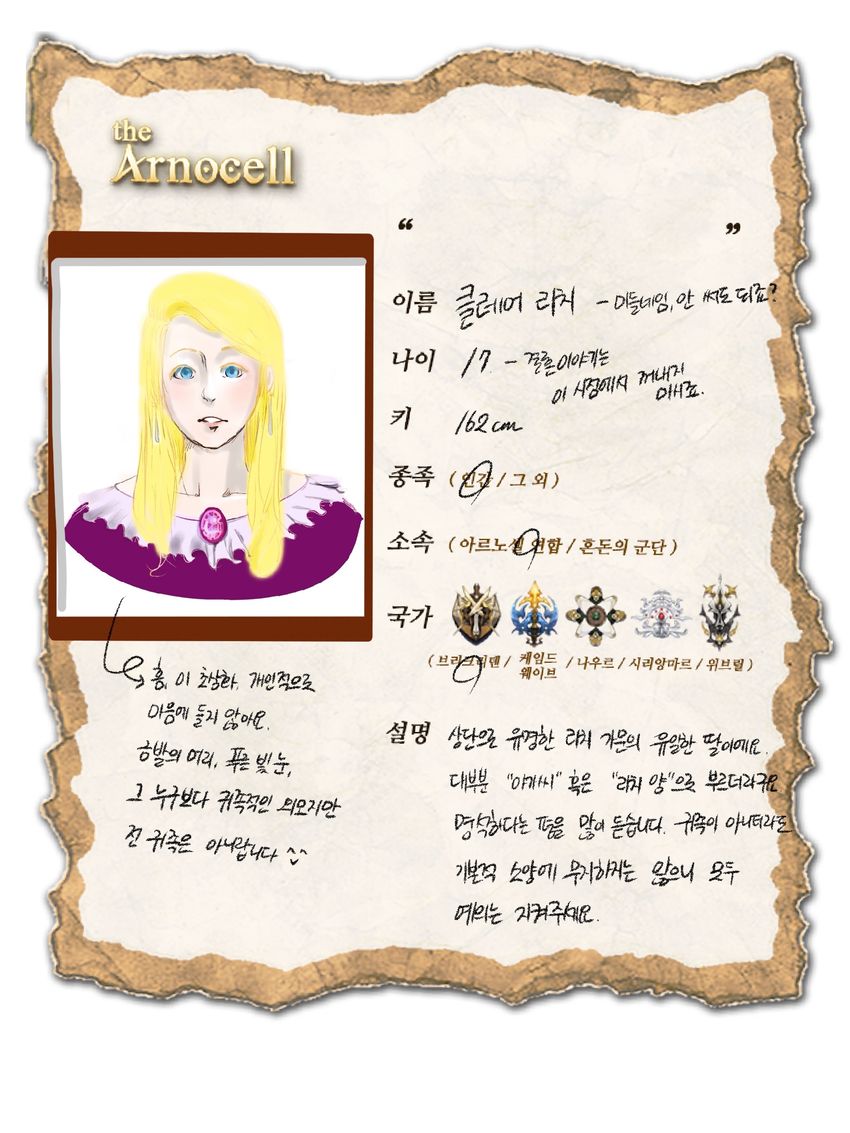 the
Arnocell
“ ”
이름 클레어 라치 - 미들네임, 안 써도 되죠?
나이 17 - 결혼 이야기는
이 시점에서 꺼내지
마시죠.
키 162cm
종족 ( 인간 / 그 외 )
소속 ( 아르노셀 연합 / 혼돈의 군단 )
국가
( 브리크리덴 / 케임드 웨이브 / 나우르 / 시리앙마르 / 위브릴 )
흠, 이 초상화, 개인적으로
마음에 들지 않아요.
금발의 머리, 푸른 빛 눈,
그 누구보다 귀족적인 외모지만
전 귀족은 아니랍니다 ^^
설명 상단으로 유명한 라치 가문의 유일한 딸이에요.
대부분 "아가씨" 혹은 "라치 양"으로 부르더라구요
명석하다는 평을 많이 듣습니다. 귀족이 아니더라도
기본적 소양에 무지하지는 않으니 모두
예의는 지켜주세요.